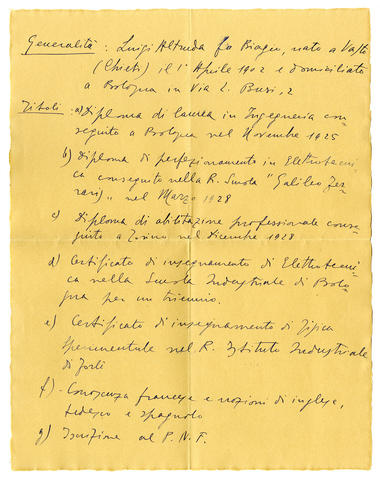 Generalità : Luigi Altruda fu Biagio, nato a Vasto
(Chieti) il 1° Aprile 1902 e domiciliato
a Bologna in Via L. Busi, 2
Titoli : a) Diploma di laurea in Ingegneria con-
seguito a Bologna nel Novembre 1925
b) Diploma di perfezionamento in Elettrotecni-
ca conseguito nella R. Scuola "Galileo Fer-
raris" nel Marzo 1928
c) Diploma di abilitazione professionale conse-
guito a Torino nel Dicembre 1928
d) Certificato di insegnamento di Elettrotecni-
ca nella Scuola Industriale di Bolo-
gna per un triennio.
e) Certificato di insegnamento di Fisica
Sperimentale nel R. Istituto Industriale
di Forlì
f) - Conoscenza francese e nozioni di inglese,
tedesco e spagnolo
g) Iscrizione al P. N. F.